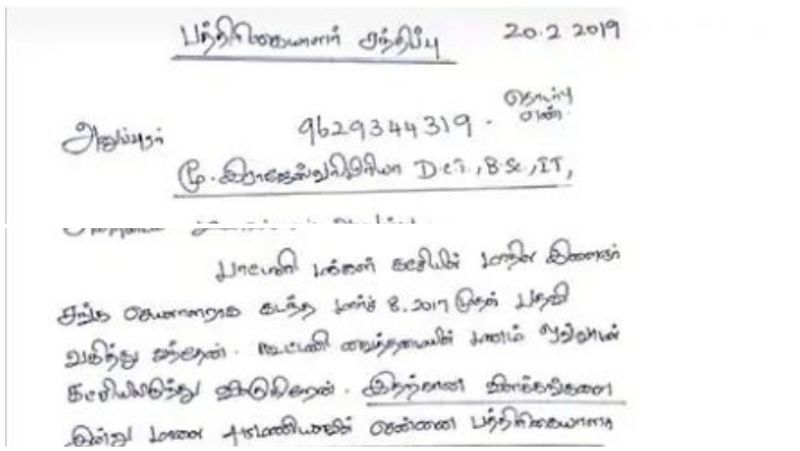 பத்திரிகையாளர் சந்திப்பு 20.2 2019
தொடர்பு
அனுப்புநர் 9629344319 - எண்
மூ. இராஜேஸ்வரிபிரியா D.c.T., B.Sc, IT,
பாட்டாளி மக்கள் கட்சியின் மாநில இளைஞர்
சங்க செயலாளராக கடந்த மார்ச் 8.2017 முதல் பதவி
வகித்து வந்தேன். கூட்டணி வைத்தமையின் காரணம்
கட்சியிலிருந்து விடுகிறேன். இதற்கான விளக்கங்களை
இன்று மாலை 4மணியளவில் சென்னை பத்திரிகையாளர்